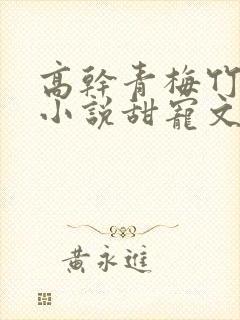 高幹青梅竹
小說甜寵文
黃永進